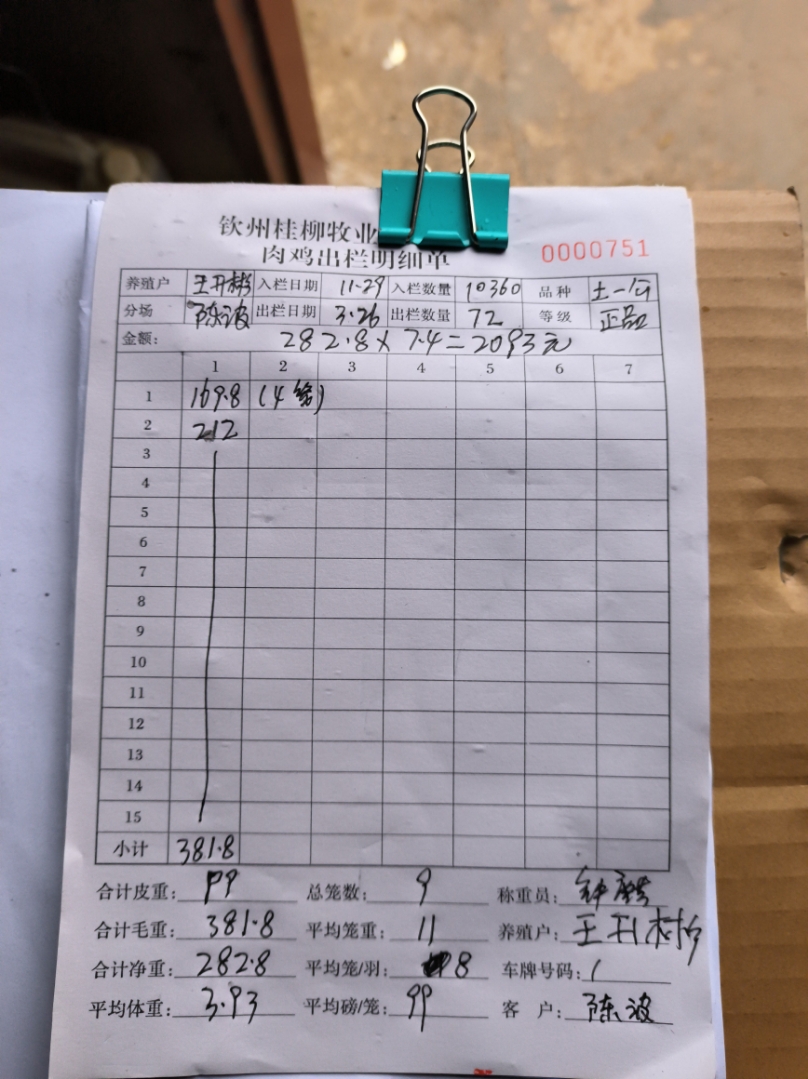 钦州桂柳牧业
肉鸡出栏明细单 0000751
养殖户 王升彬 入栏日期 11·29 入栏数量 10360 品种 土一
分场 陈波 出栏日期 3·26 出栏数量 72 等级 正品
金额: 282.8×7.4=2093元
1 2 3 4 5 6 7
1 169.8 (4笼)
2 212
3
4
5
6
7
8
9
10
11
12
13
14
15
小计 381.8
合计皮重: 99 总笼数: 9 称重员: 钟
合计毛重: 381.8 平均笼重: 11 养殖户: 王升彬
合计净重: 282.8 平均笼/羽: 8 车牌号码: /
平均体重: 3.93 平均磅/笼: 99 客户: 陈波